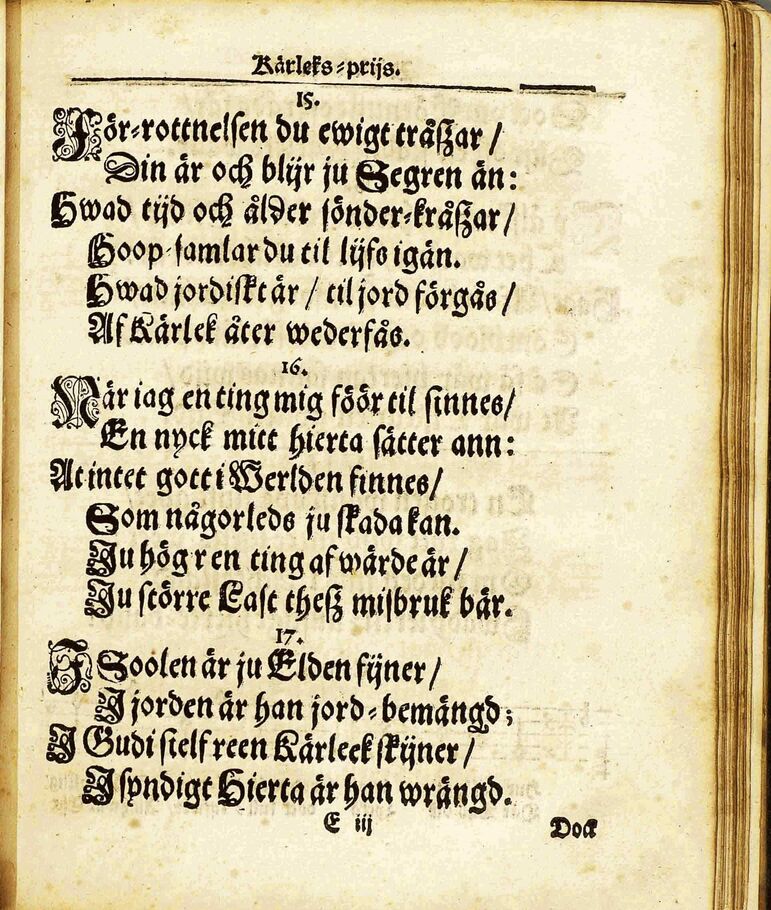 Kärleks-prijs.
15.
För-rottnelsen du ewigt tråßar /
Din är och blijr ju Segren än:
Hwad tijd och ålder sönder-kråßar /
Hoop samlar du til lijfs igän.
Hwad jordiskt är / til jord förgås /
Af Kärlek åter wederfås.
16.
När iag en ting mig föör til sinnes /
En nyck mitt hierta sätter ann:
At intet gott i Werlden finnes /
Som någorleds ju skada kan.
Ju högr en ting af wärde är /
Ju större Last theß misbruk bär.
17.
I Soolen är ju Elden fijner /
I jorden är han jord-bemängd;
I Gudi sielf reen Kärleek skijner /
I syndigt Hierta är han wrängd.
E iij
Dock